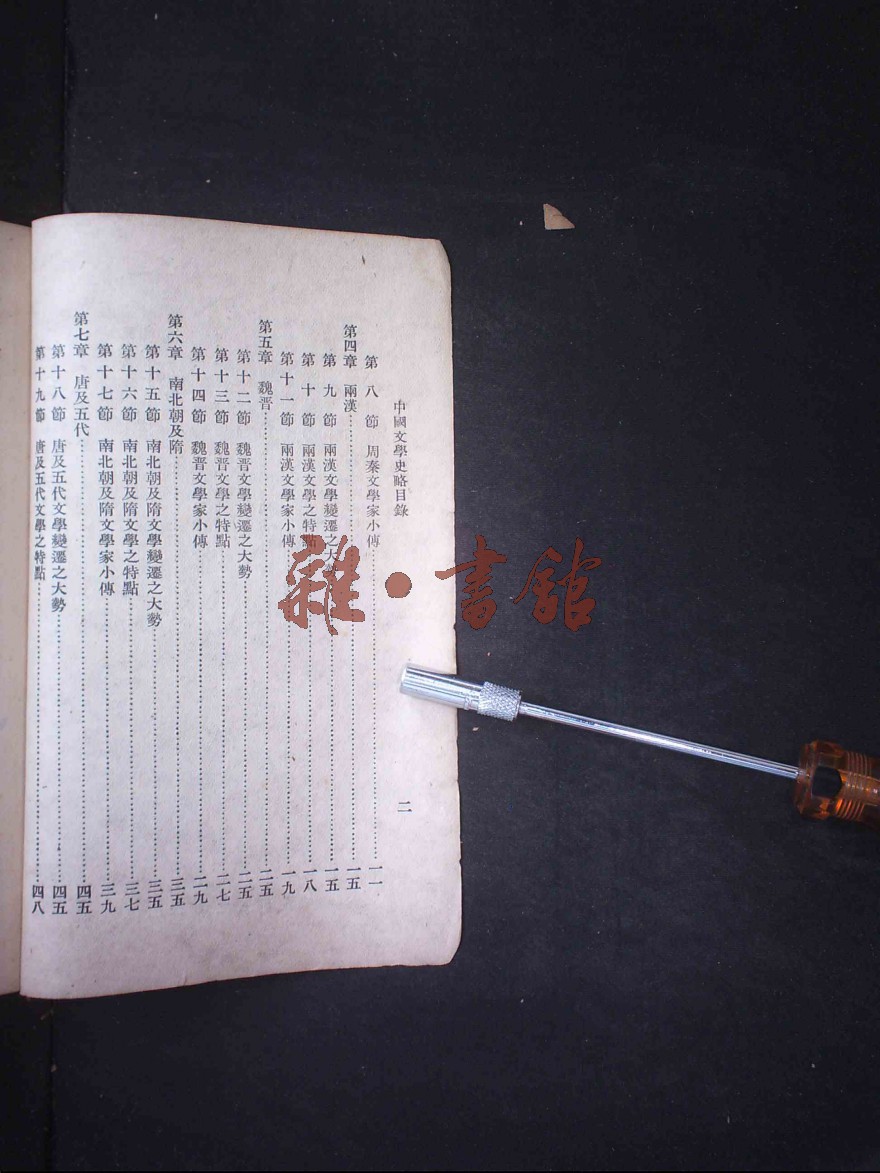 中國文學史略目錄
二
第八節 周秦文學家小傳……一一
第四章 兩漢……一五
第九節 兩漢文學變遷之大勢……一五
第十節 兩漢文學之特點……一八
第十一節 兩漢文學家小傳……一九
第五章 魏晉……二五
第十二節 魏晉文學變遷之大勢……二五
第十三節 魏晉文學之特點……二七
第十四節 魏晉文學家小傳……二九
第六章 南北朝及隋……三五
第十五節 南北朝及隋文學變遷之大勢……三五
第十六節 南北朝及隋文學之特點……三七
第十七節 南北朝及隋文學家小傳……三九
第七章 唐及五代……四五
第十八節 唐及五代文學變遷之大勢……四五
第十九節 唐及五代文學之特點……四八
雜·書館